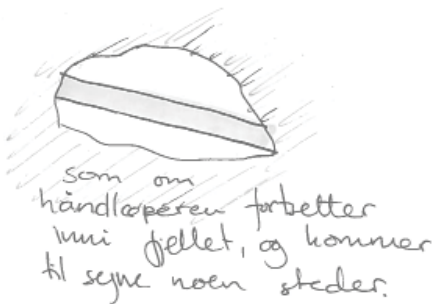 som om
håndløperen fortsetter
inni fjellet, og kommer
til syne noen steder.